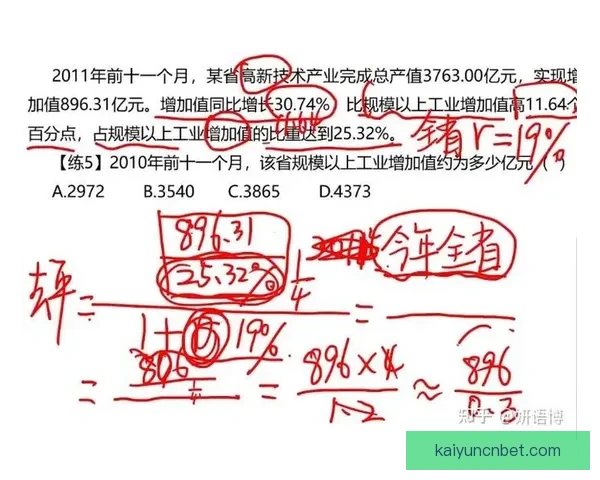 2011年前十一个月，某省高新技术产业完成总产值3763.00亿元，实现增
加值896.31亿元。增加值同比增长30.74%，比规模以上工业增加值高11.64个
百分点，占规模以上工业增加值的比重达到25.32%。
全省 r=19%
【练5】2010年前十一个月，该省规模以上工业增加值约为多少亿元（ ）
A.2972 B.3540 C.3865 D.4373
896.31
25.32%
1/4
今年全省
=
=
1+ 19%
806
1/4
=
=
896×4
1.2
≈
896
0.3
知乎 @妍语博
kaiyuncnbet.com